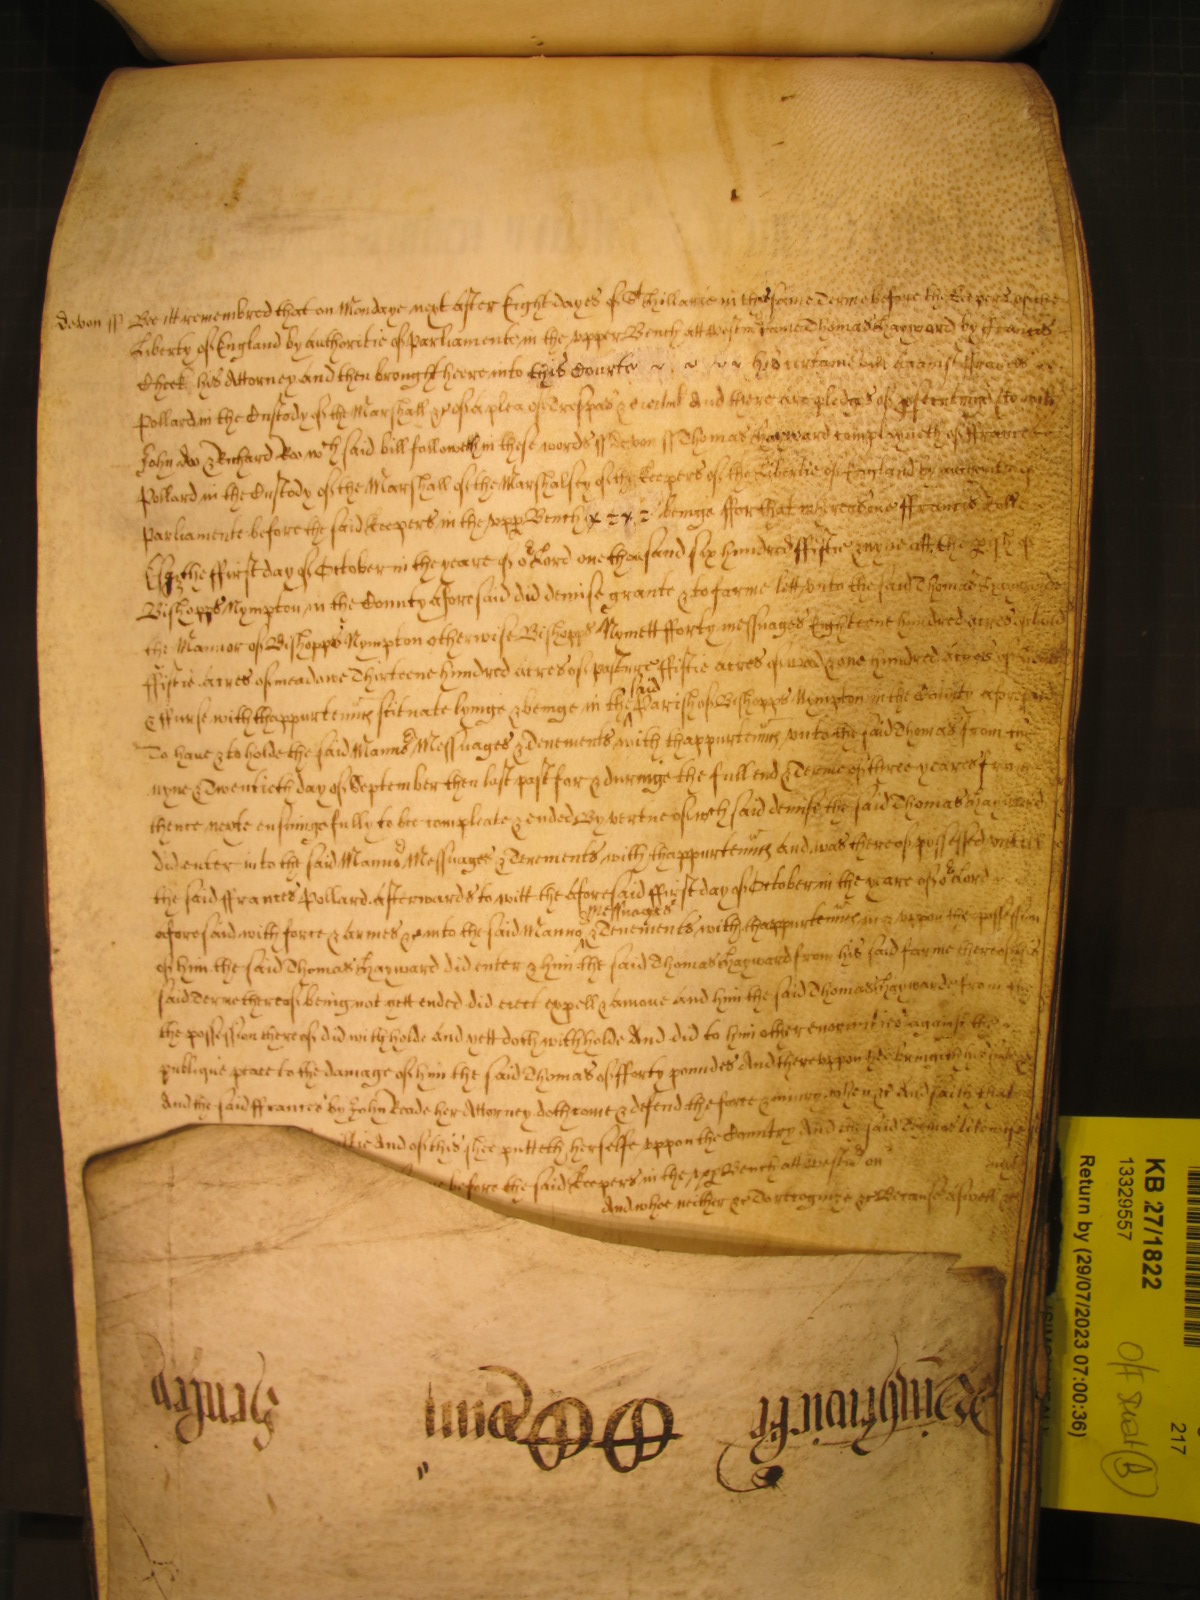 devon ss Bee itt remembred that on Mondaye next after Eight dayes of St Hillarie in this same Terme before the Keepers of the
Liberty of England by authoritie of Parliamente in the upper Bench att Westm came Thomas Hayward by Francis
Cheek his Attorney and then brought heere into this Courte his certaine bill against Frances
Pollard in the Custody of the Marshall &c of a plea of Trespas & eiectmt And there are pledges of prosecuting to witt
John doo & Richard Roo wch said bill followeth in these words ss devon ss Thomas Hayward complayneth of ffrances
Pollard in the Custody of the Marshall of the Marshalsey of the Keepers of the Libertie of England by authoritie of
Parliamente before the said Keepers in the upp Bench beinge ffor that whereas one ffrancis Rolle
Esqr the ffirst day of October in the yeare of or Lord one thousand six hundred ffiftie & nyne att the pish of
Bishopps Nympton in the County aforesaid did demise grante & to farme lett unto the said Thomas Hayward
the Mannor of Bishopps Nympton otherwise Bishopps Nymett fforty messuages Eighteene hundred acres of land
ffiftie acres of meadowe Thirteene hundred acres of pasture ffiftie acres of wood & one hundred acres of
& ffurse with thappurtenncs scituate lyinge & beinge in the said Parish of Bishopps Nympton in the County aforesaid
To have & to holde the said Mannor Messuages & Tenements with thappurtenncs unto the said Thomas from the
nyne & Twentieth day of September then last past for & duringe the full end & Terme of three yeares from
thence nexte ensuinge fully to bee compleate & ended By vertue of wch said demise the said Thomas Hayward
did enter into the said Mannor Messuages & Tenements with thappurtenncs and was thereof possessed untill
the said ffrances Pollard afterwards to witt the aforesaid ffirst day of October in the yeare of or Lord
aforesaid with force & armes &c into the said Mannor Messuages & Tenements with thappurtenncs in & uppon the possession
of him the said Thomas Hayward did enter & him the said Thomas Hayward from his said farme thereof his
said Terme thereof being not yett ended did eiect expell & amove and him the said Thomas Hayward from the
the possession thereof did withholde and yett doth withholde And did to him other enormities against the
publique peace to the damage of him the said Thomas of fforty poundes And thereuppon hee bringeth his suite &c
And the said ffrances by John Rode her Attorney doth come & defend the force & iniury when &c And saith that
And of this shee putteth herselfe uppon the Country And the said Thomas likewise
before the said Keepers in the upp Bench att Westm on next
And whoe neither &c To recognize &c Because aswell &c
KB 27/1822
13329557
Return by (29/07/2023 07:00:36)
217